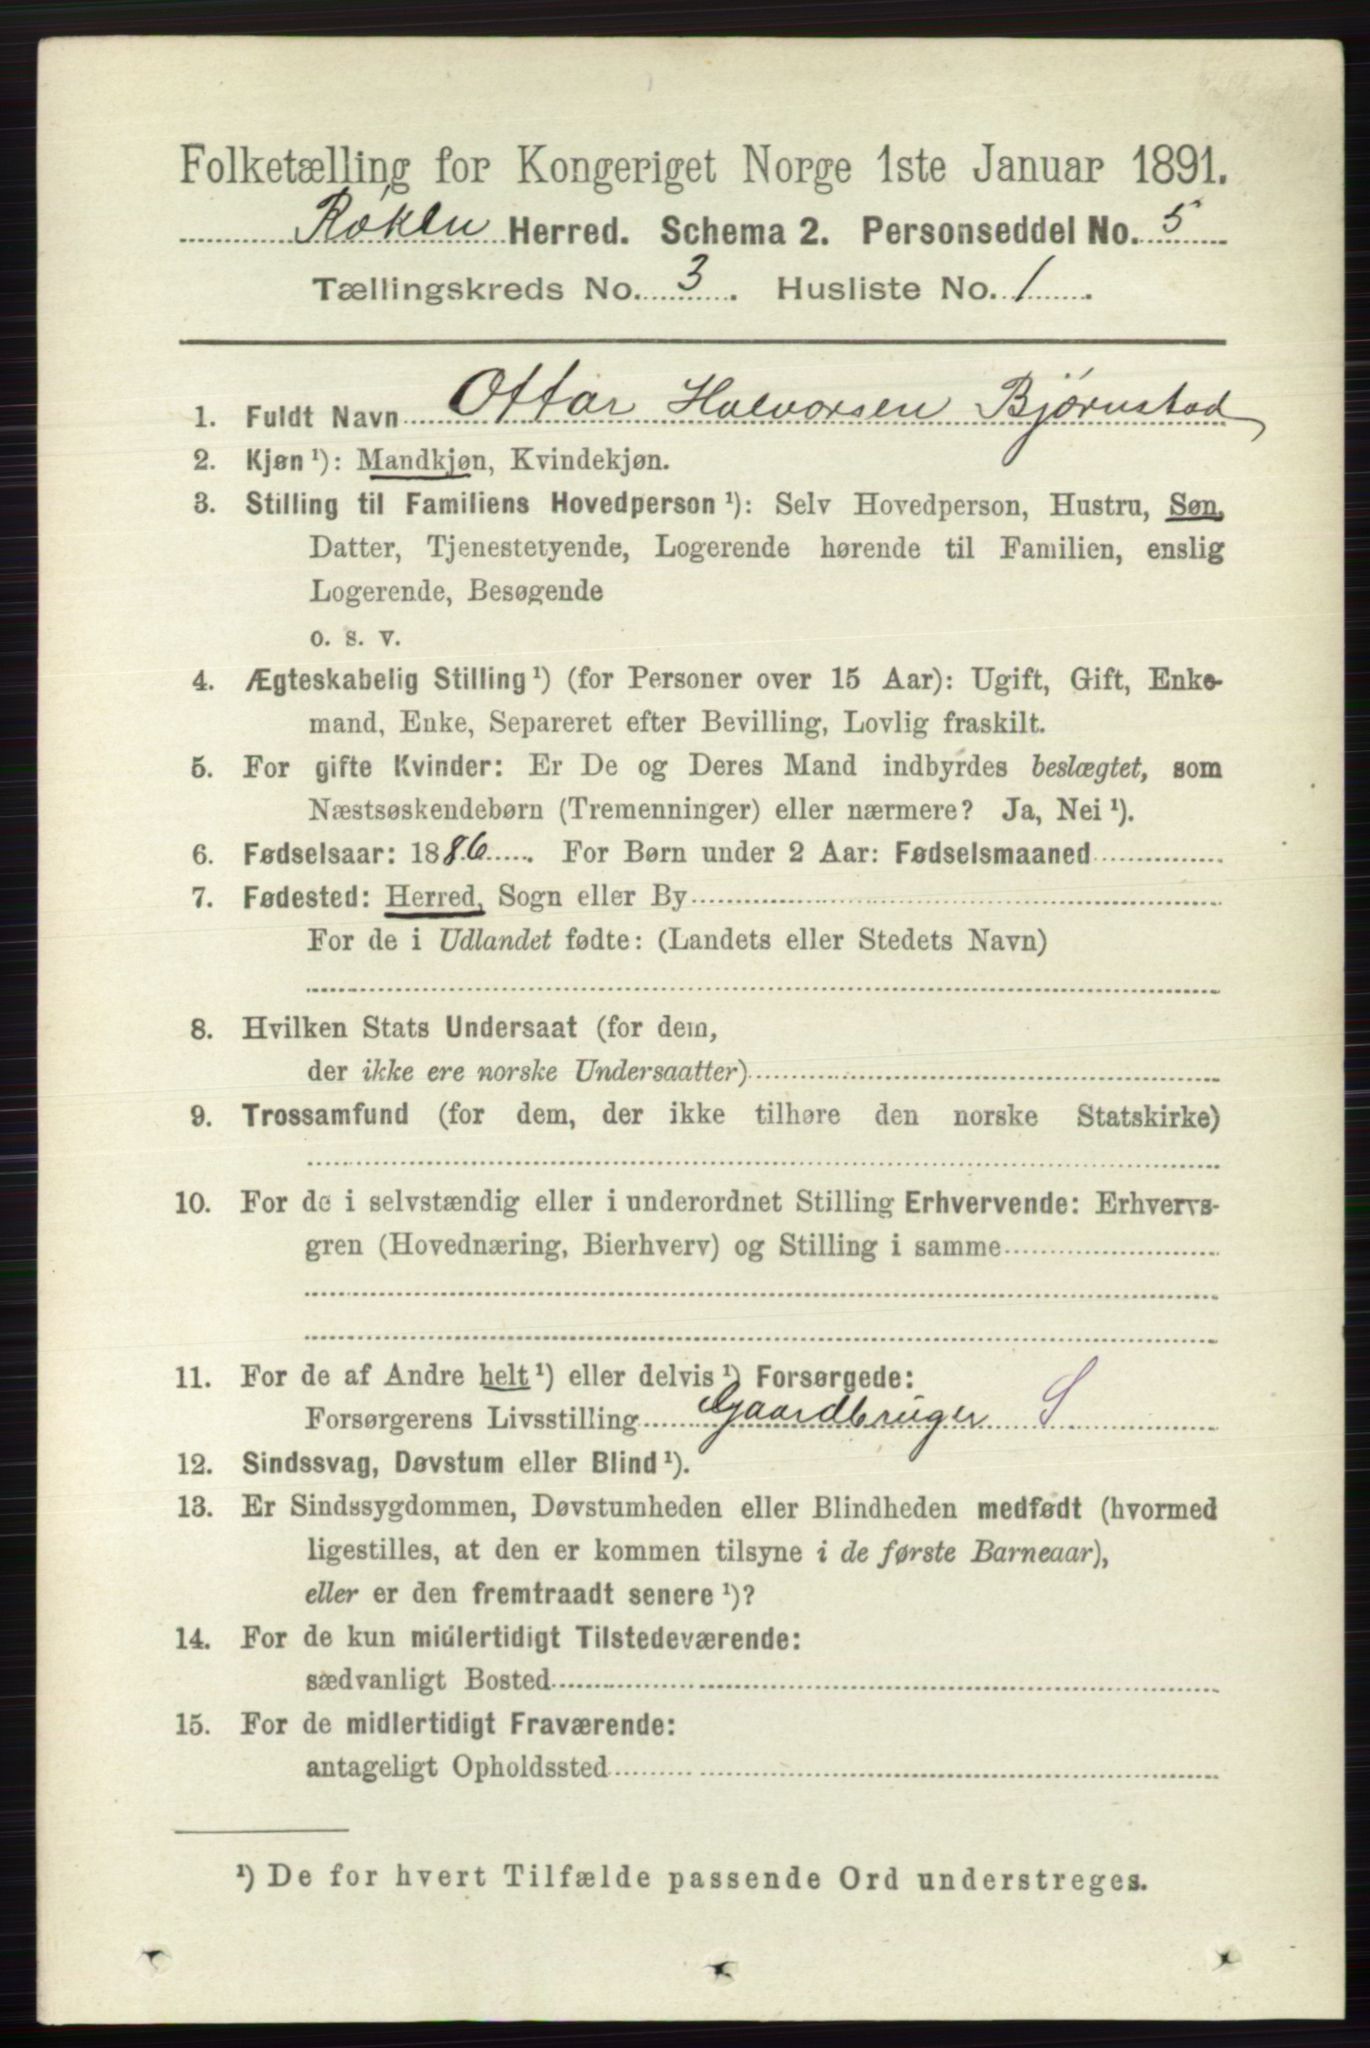 Folketælling for Kongeriget Norge 1ste Januar 1891.
Røken Herred. Schema 2. Personseddel No. 5
Tællingskreds No. 3. Husliste No. 1.
1. Fuldt Navn Ottar Halvorsen Bjørnstad
2. Kjøn ¹): Mandkjøn, Kvindekjøn.
3. Stilling til Familiens Hovedperson ¹): Selv Hovedperson, Hustru, Søn,
Datter, Tjenestetyende, Logerende hørende til Familien, enslig
Logerende, Besøgende
o. s. v.
4. Ægteskabelig Stilling ¹) (for Personer over 15 Aar): Ugift, Gift, Enke-
mand, Enke, Separeret efter Bevilling, Lovlig fraskilt.
5. For gifte Kvinder: Er De og Deres Mand indbyrdes beslægtet, som
Næstsøskendebørn (Tremenninger) eller nærmere? Ja, Nei ¹).
6. Fødselsaar: 1886. For Børn under 2 Aar: Fødselsmaaned
7. Fødested: Herred, Sogn eller By
For de i Udlandet fødte: (Landets eller Stedets Navn)
8. Hvilken Stats Undersaat (for dem,
der ikke ere norske Undersaatter)
9. Trossamfund (for dem, der ikke tilhøre den norske Statskirke)
10. For de i selvstændig eller i underordnet Stilling Erhvervende: Erhvervs-
gren (Hovednæring, Bierhverv) og Stilling i samme
11. For de af Andre helt ¹) eller delvis ¹) Forsørgede:
Forsørgerens Livsstilling Gaardbruger S
12. Sindssvag, Døvstum eller Blind ¹).
13. Er Sindssygdommen, Døvstumheden eller Blindheden medfødt (hvormed
ligestilles, at den er kommen tilsyne i de første Barneaar),
eller er den fremtraadt senere ¹)?
14. For de kun midlertidigt Tilstedeværende:
sædvanligt Bosted
15. For de midlertidigt Fraværende:
antageligt Opholdssted
¹) De for hvert Tilfælde passende Ord understreges.